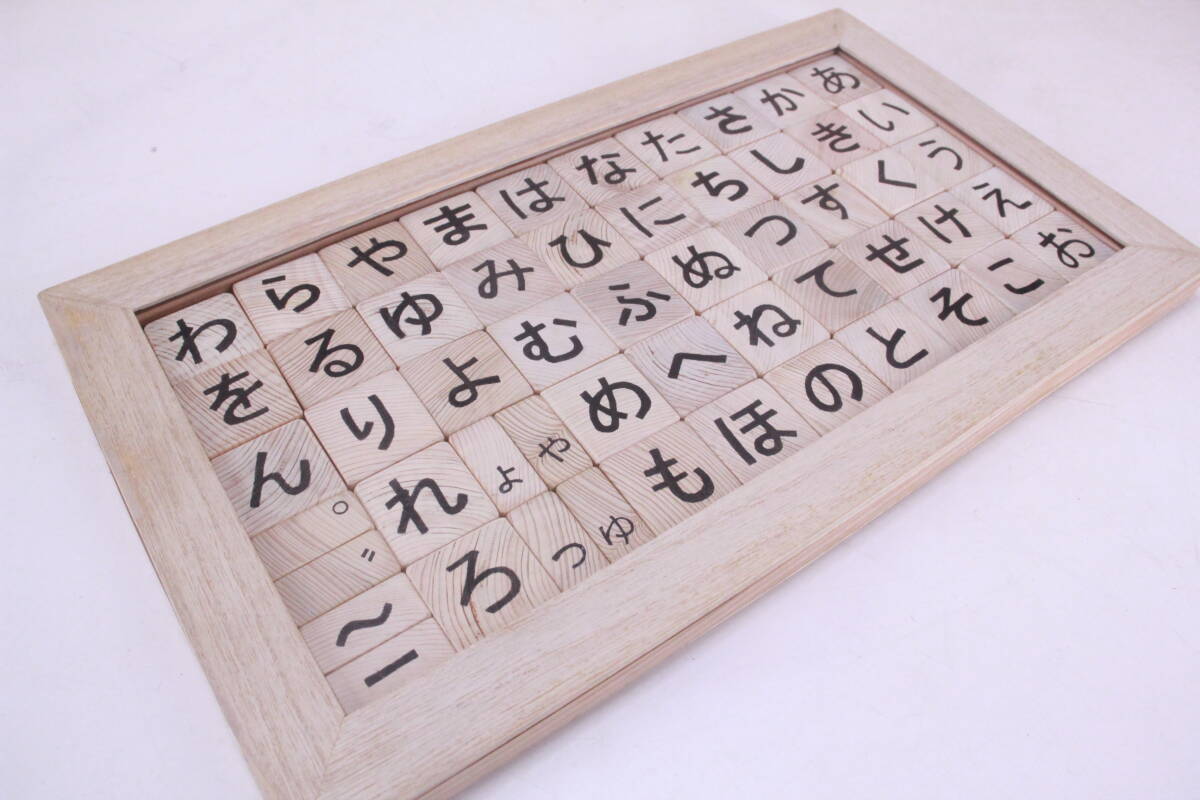 あいうえお
かきくけこ
さしすせそ
たちつてと
なにぬねの
はひふへほ
まみむめも
やゆよゃょゅっ
らるりれろ
わをん゜゛〜ー